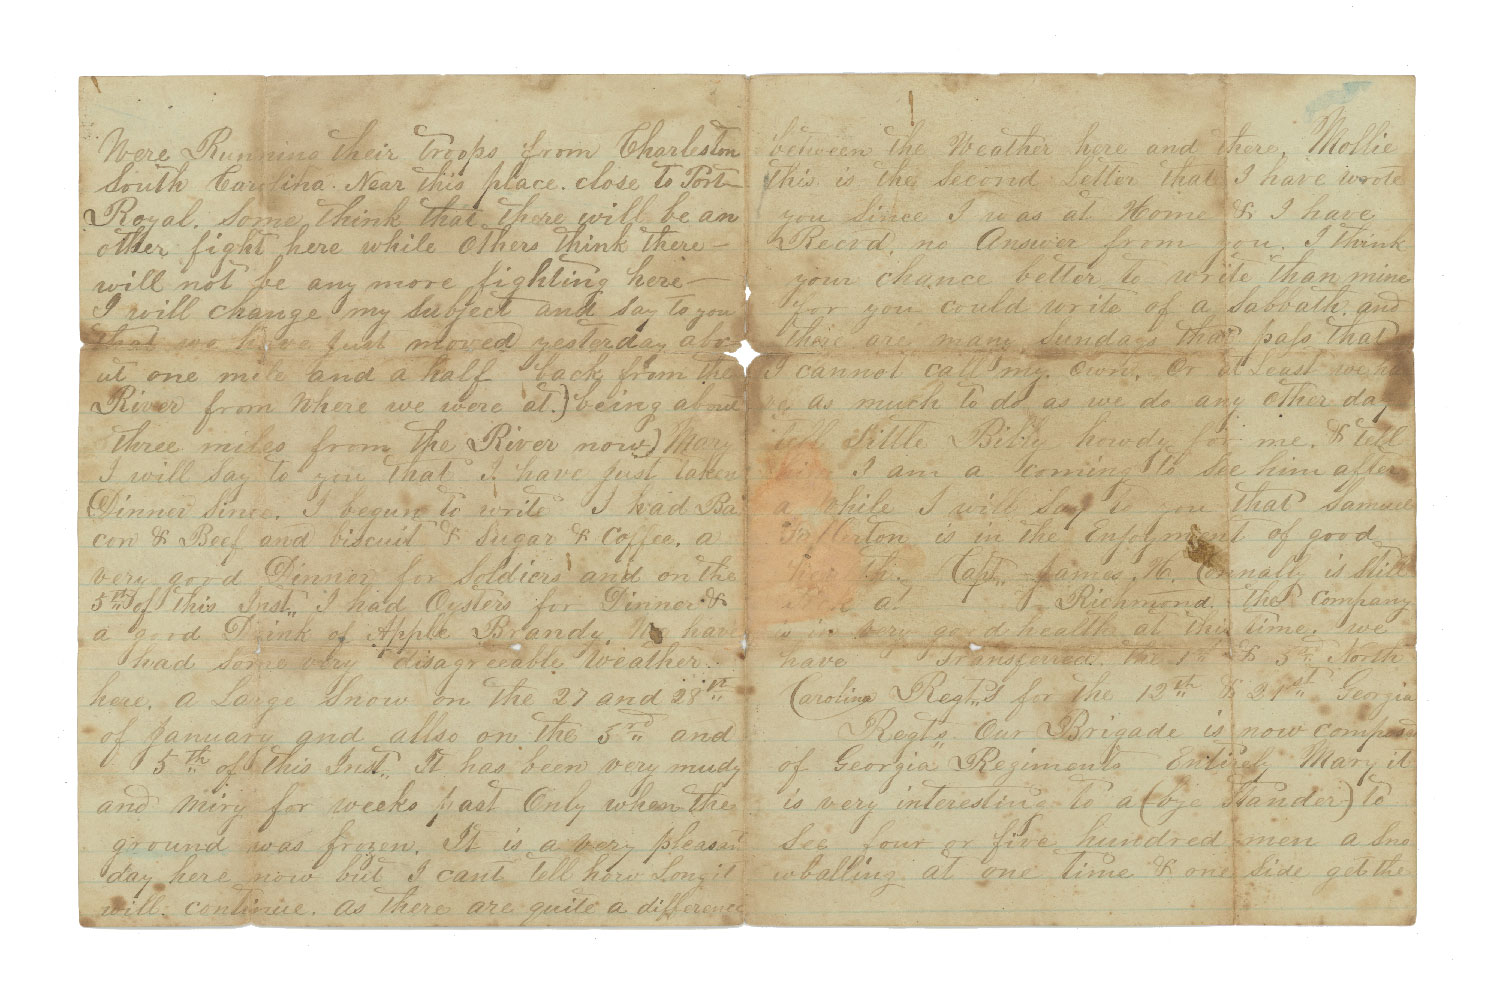 Were Running their troops from Charleston
South Carolina. Near this place. close to Port
Royal. Some think that there will be an
other fight here while others think there
will not be any more fighting here
I will change my subject and say to you
that we have just moved yesterday abo
ut one mile and a half back from the
River from Where we were at.) being about
three miles from the River now) Mary
I will say to you that I have just taken
Dinner since. I begun to write I had Ba
con & Beef and biscuit & Sugar & Coffee. a
very good Dinner for Soldiers and on the
5th of this Inst,, I had Oysters for Dinner &
a good Drink of Apple Brandy. We have
had some very disagreeable Weather
here. a Large Snow on the 27 and 28
of January and allso on the 3rd and
5th of this Inst,, It has been very mudy
and miry for weeks past Only when the
ground was frozen. It is a very pleasant
day here now but I cant tell how Long it
will. continue. as there are quite a difference
between the Weather here and there. Mollie
this is the Second Letter that I have wrote
you Since I was at Home & I have
Recvd. no Answer from you. I think
your chance better to write than mine
for you could write of a Sabbath. and
there are many Sundays that pass that
I cannot call my. own. Or at Least we ha
ve as much to do as we do any other day
tell Little Billy howdy for me. & tell
him I am a coming to See him after
a while I will Say to you that Samuel
Fullerton is in the Enjoyment of good
health. Capt,, James. H. Connally is Still
a Richmond. the Company
is in very good health at this time. we
have transfered. the 1st & 3rd North
Carolina Regt,,s for the 12th & 21st Georgia
Regt,,s. Our Brigade is now composed
of Georgia Regiments Entirely Mary it
is very interesting to a (bye Stander) to
See four or five hundred men a Sno
wballing at one time & one Side get the